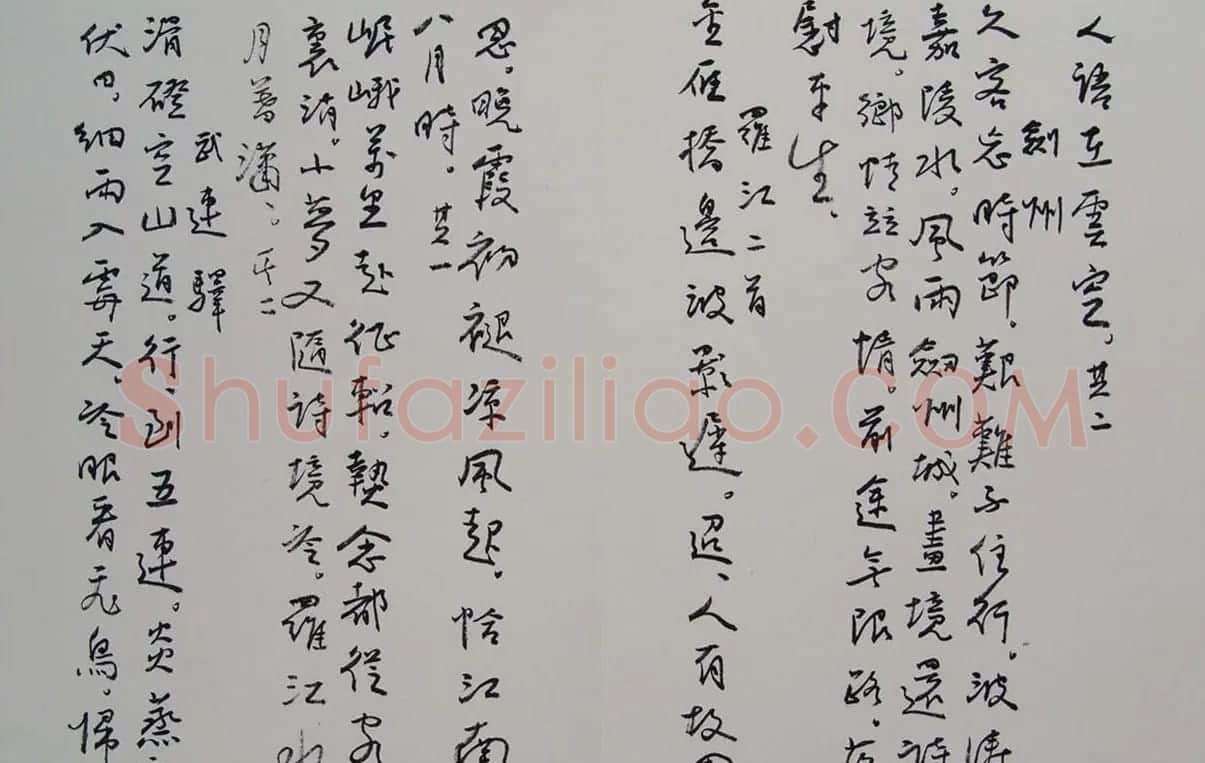 人語在雲空。其二
劍州
久客忘時節。艱難子住行。波濤
嘉陵水。風雨劍州城。畫境還詩
境。鄉情訟客情。前途無限路。
慰平生、
羅江二首
金雁橋邊波影遲。迢、人有故園
思。晚霞初褪涼風起。恰江南
八月時。其一
岷峨萬里赴征軺。執念都從客
裏消。小夢又隨詩境冷。羅江水
月萬瀟、。其二
武連驛
滑磴空山道。行、到五連。炎蒸
伏日。細雨入霽天。冷眼看飛鳥。歸
Shufaziliao.COM